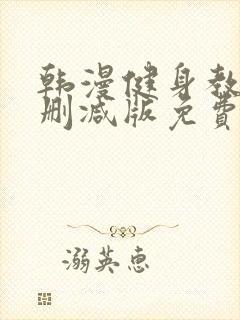 韩漫健身教
删减版免费
溺英恵